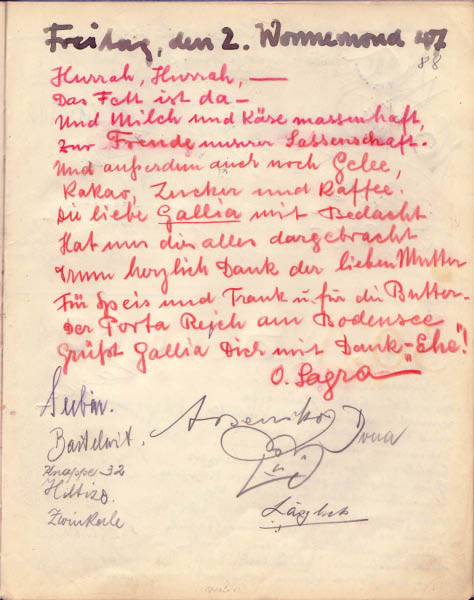 Freitag, den 2. Wonnemond 107
88
Hurrah, Hurrah, —
Das Fett ist da —
Und Milch und Käse massenhaft,
Zur Freude unserer Sassenschaft.
Und außerdem auch noch Gelee,
Kakao, Zucker und Kaffee.
Die liebe Gallia mit Bedacht
Hat uns dies alles dargebracht
Drum herzlich Dank der lieben Mutter
Für Speis und Trank u. für die Butter –
Der Porta Rejch am Bodensee
Grüßt Gallia Dich mit Dank – "Ehe"!
O. Sagra
Bartelwit.
Knappe 32